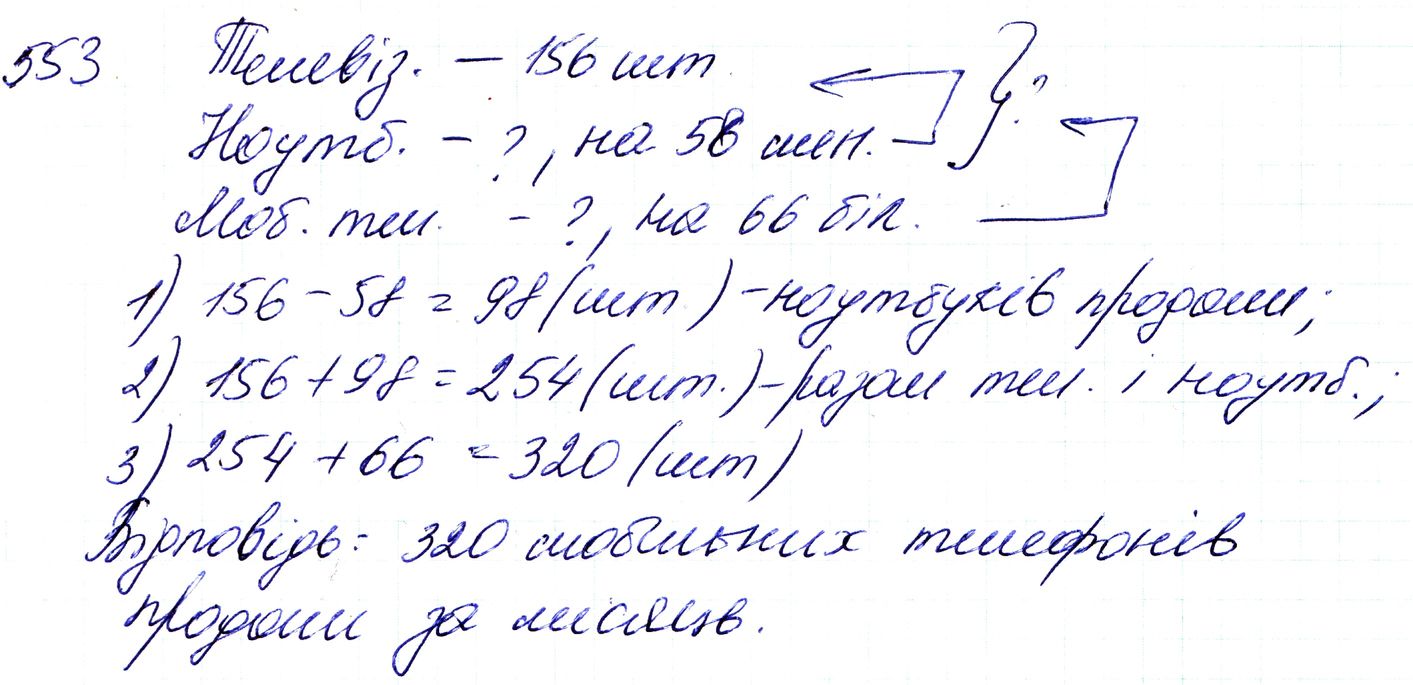 553 Телевіз. – 156 шт.
Ноутб. – ?, на 58 мен. } ?
Моб. тел. – ?, на 66 біл.
1) 156 – 58 = 98 (шт.) – ноутбуків продали;
2) 156 + 98 = 254 (шт.) – разом тел. і ноутб.;
3) 254 + 66 = 320 (шт)
Відповідь: 320 мобільних телефонів
продали за місяць.